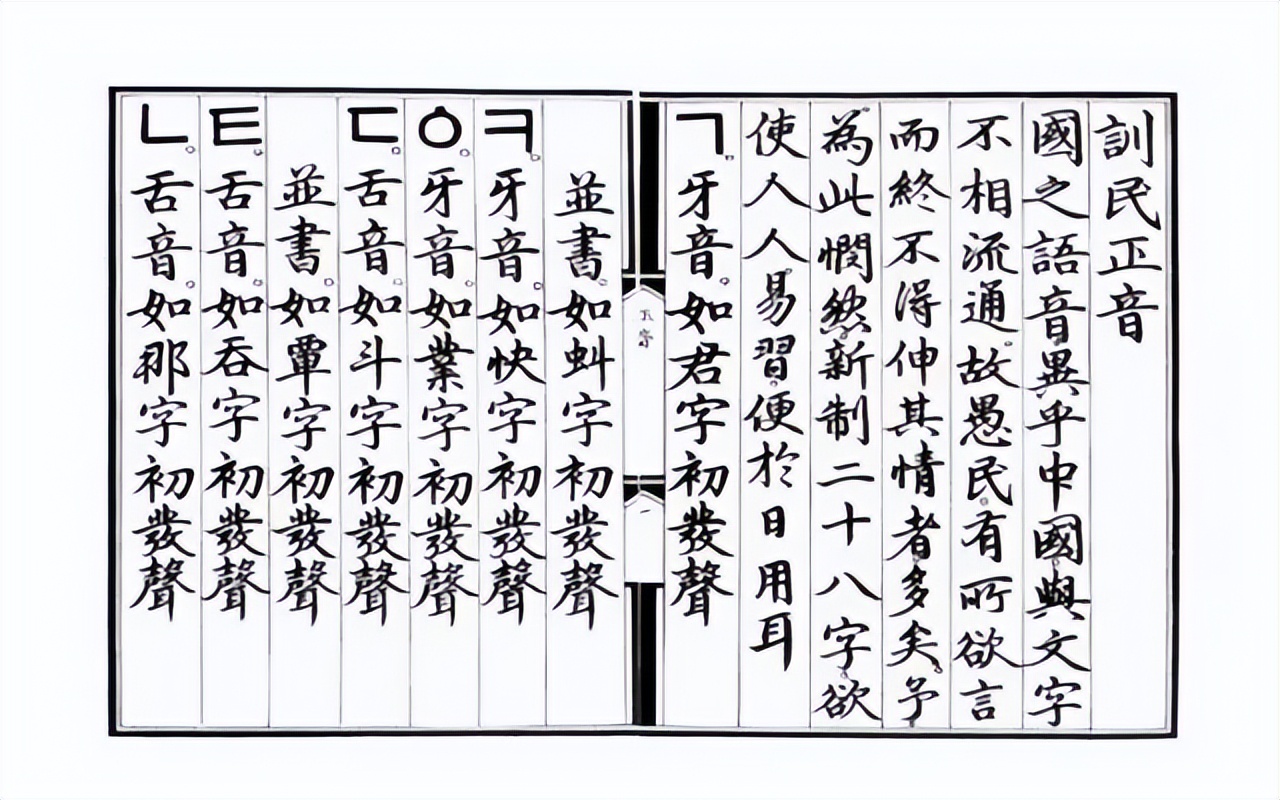 訓民正音
國之語音異乎中國與文字
不相流通。故愚民。有所欲言
而終不得伸其情者多矣。予
為此憫然新制二十八字。欲
使人人易習。便於日用耳
ㄱ。牙音。如君字初發聲
一
並書。如虯字初發聲
ㅋ。牙音。如快字初發聲
ㆁ。牙音。如業字初發聲
ㄷ。舌音。如斗字初發聲
並書。如覃字初發聲
ㅌ。舌音。如呑字初發聲
ㄴ。舌音。如那字初發聲